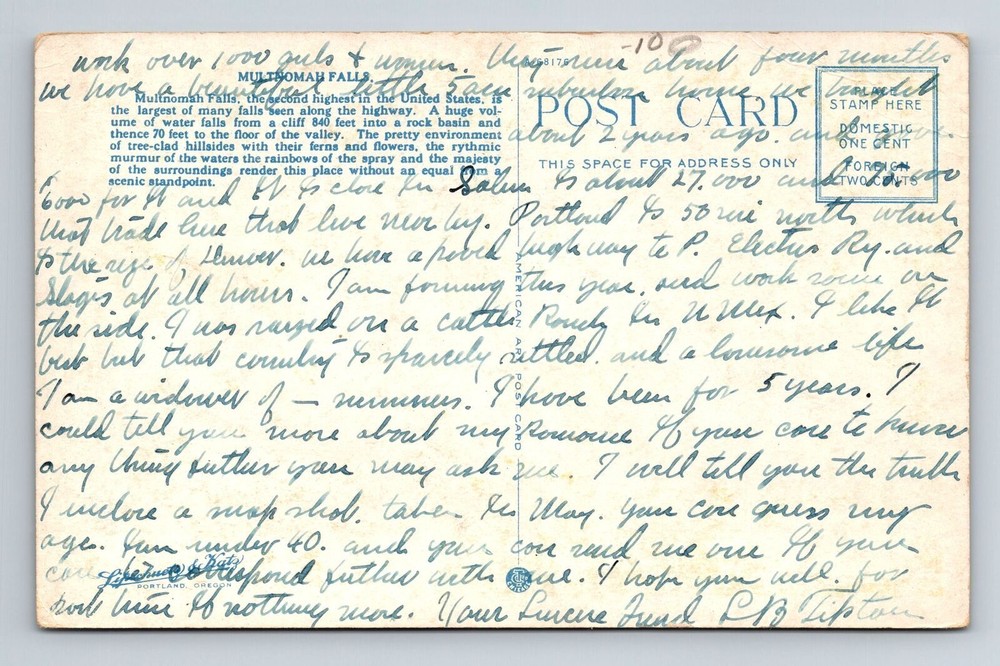 -10
work over 1000 girls & women. They run about four months
MULTNOMAH FALLS.
we have a beautiful little 5 acre suburban home we bought
Multnomah Falls, the second highest in the United States, is
the largest of many falls seen along the highway. A huge vol-
ume of water falls from a cliff 840 feet into a rock basin and
thence 70 feet to the floor of the valley. The pretty environment
of tree-clad hillsides with their ferns and flowers, the rythmic
murmur of the waters the rainbows of the spray and the majesty
of the surroundings render this place without an equal from a
scenic standpoint.
POST CARD
THIS SPACE FOR ADDRESS ONLY
PLACE
STAMP HERE
DOMESTIC
ONE CENT
FOREIGN
TWO CENTS
about 2 years ago. and
6000 for it and it is close in Salem is about 27.000 and
that trade here that live near by. Portland is 50 mi north which
is the size of Denver. we have a paved high way to P. Electric Ry. and
Stages at all hours. I am farming this year. and work some on
the side. I was raized on a cattle Ranch in N Mex. I like it
but but that country is sparcely settled. and a lonesome life
I am a widower of — summers. I have been for 5 years. I
could tell you more about my Romance if you care to know
any thing futher you may ask me. I will tell you the truth
I inclose a snap shot. taken in May. you can guess my
age. I am under 40. and you can send me one If you
care to correspond futher with me. I hope you will. for
time if nothing more. Your Sincere Friend L B Tipton
AMERICAN ART POST CARD
PORTLAND, OREGON